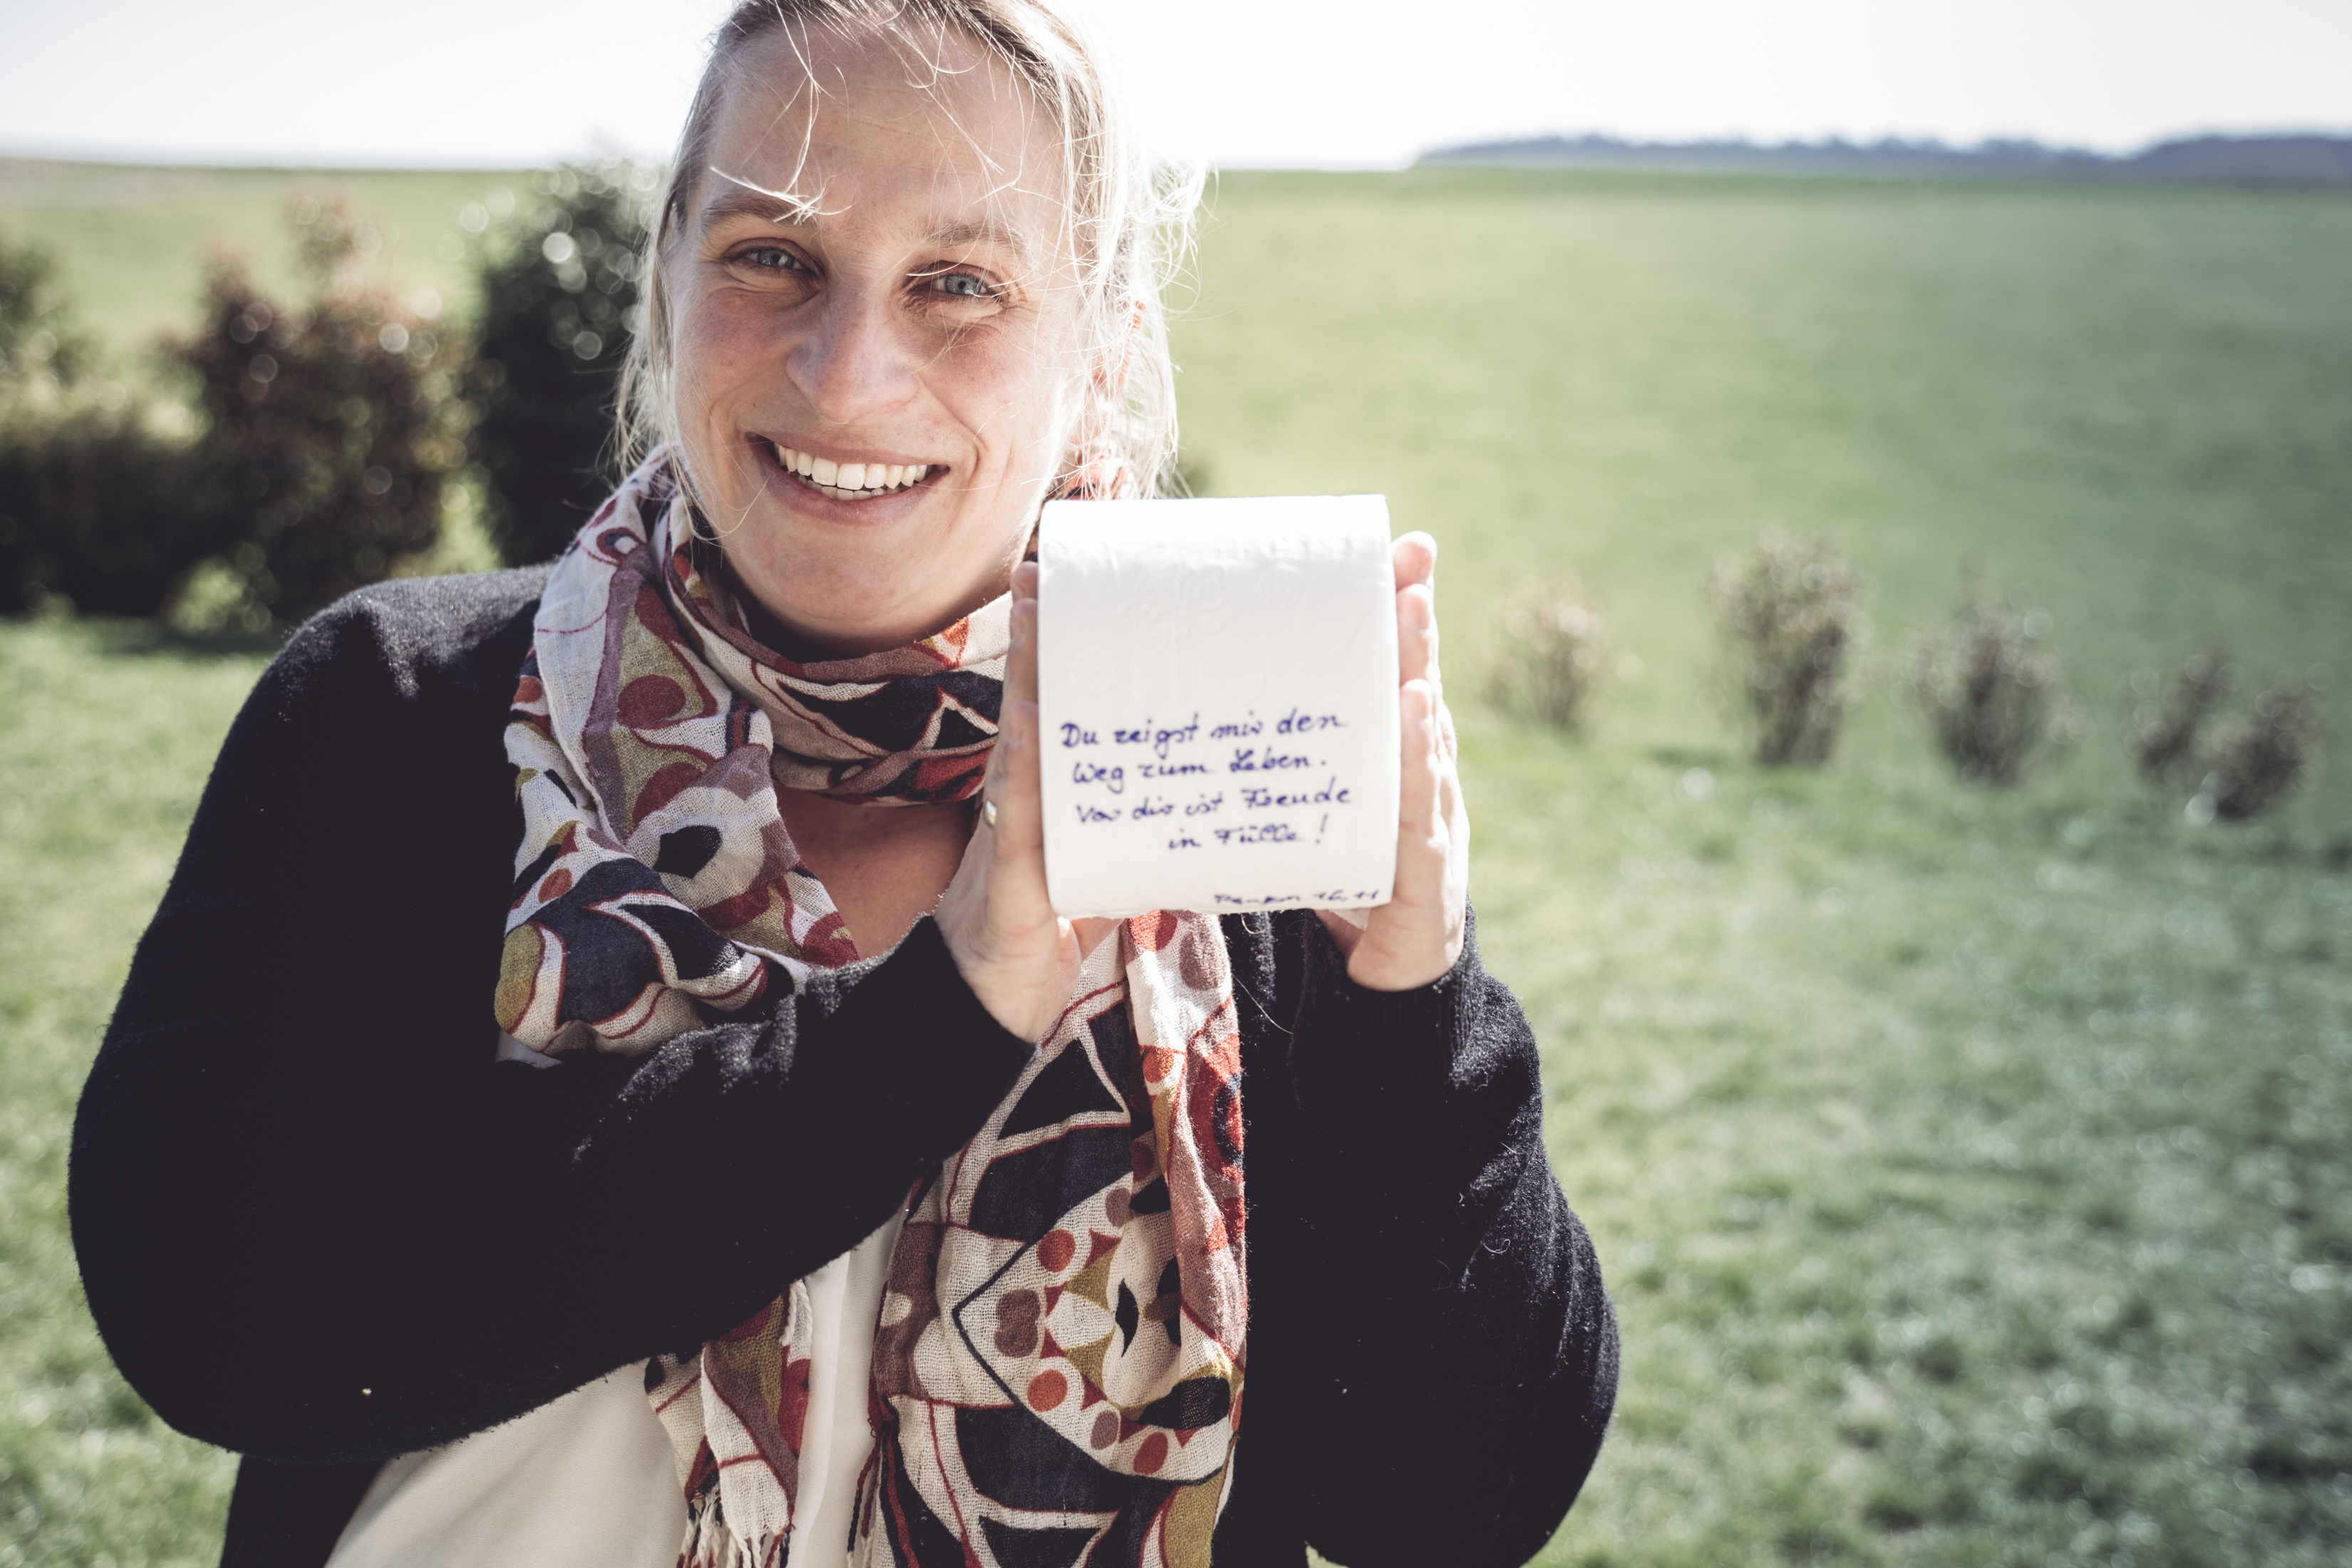 Du zeigst mir den
Weg zum Leben.
Vor dir ist Freude
in Fülle!
Psalm 16,11